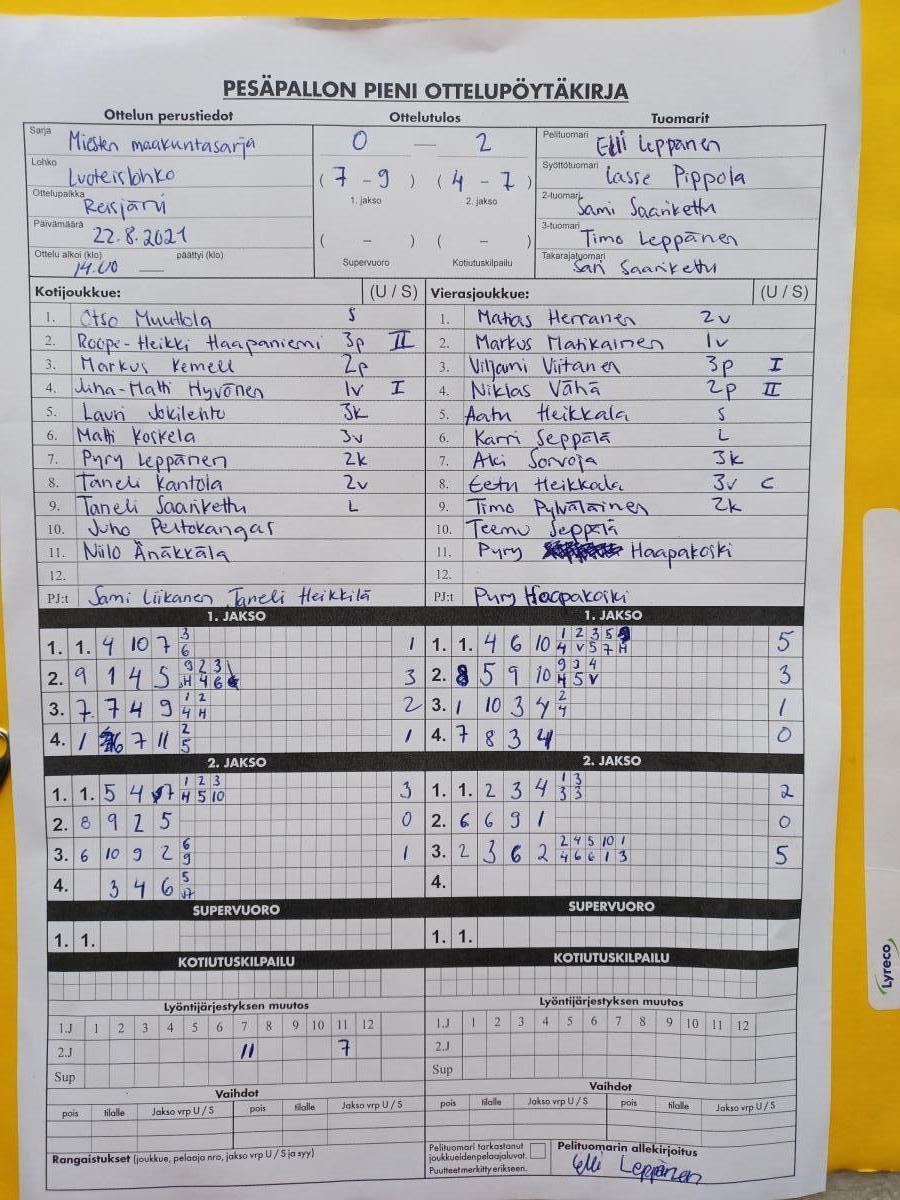 PESÄPALLON PIENI OTTELUPÖYTÄKIRJA
Ottelun perustiedot Ottelutulos Tuomarit
Sarja Miesten maakuntasarja 0 — 2 Pelituomari Elli Leppänen
Lohko Luoteislohko ( 7 - 9 ) ( 4 - 7 ) Syöttötuomari Lasse Pippola
1. jakso 2. jakso
Ottelupaikka Reisjärvi 2-tuomari Sami Saarikettu
Päivämäärä 22.8.2021 ( - ) ( - ) 3-tuomari Timo Leppänen
Ottelu alkoi (klo) 14.00 — päättyi (klo) Supervuoro Kotiutuskilpailu Takarajatuomari Sari Saarikettu
Kotijoukkue: (U / S) Vierasjoukkue: (U / S)
1. Otso Muuttola S 1. Matias Herranen 2v
2. Roope-Heikki Haapaniemi 3p II 2. Markus Matikainen 1v
3. Markus Kemell 2p 3. Viljami Viitanen 3p I
4. Juha-Matti Hyvönen 1v I 4. Niklas Vähä 2p II
5. Lauri Jokilehto 3k 5. Aatu Heikkala S
6. Matti Koskela 3v 6. Karri Seppälä L
7. Pyry Leppänen 2k 7. Aki Sorvoja 3k
8. Taneli Kantola 2v 8. Eetu Heikkala 3v C
9. Taneli Saarikettu L 9. Timo Pylväläinen 2k
10. Juho Peltokangas 10. Teemu Seppälä
11. Niilo Änäkkälä 11. Pyry Haapakoski
12. 12.
PJ:t Sami Liikanen Taneli Heikkilä PJ:t Pyry Haapakoski
1. JAKSO 1. JAKSO
1. 1. 4 10 7 3 6 1 1. 1. 4 6 10 1 2 3 5 4 V 5 7 H 5
2. 9 1 4 5 9 2 3 H 4 6 3 2. 8 5 9 10 9 3 4 H 5 V 3
3. 7 7 4 9 1 2 4 H 2 3. 1 10 3 4 2 4 1
4. 1 6 7 11 2 5 1 4. 7 8 3 4 0
2. JAKSO 2. JAKSO
1. 1. 5 4 7 1 2 3 4 5 10 3 1. 1. 2 3 4 1 3 3 3 2
2. 8 9 2 5 0 2. 6 6 9 1 0
3. 6 10 9 2 6 9 1 3. 2 3 6 2 2 4 5 10 1 4 6 6 1 3 5
4. 3 4 6 5 4.
SUPERVUORO SUPERVUORO
1. 1. 1. 1.
KOTIUTUSKILPAILU KOTIUTUSKILPAILU
Lyöntijärjestyksen muutos Lyöntijärjestyksen muutos
1.J 1 2 3 4 5 6 7 8 9 10 11 12 1.J 1 2 3 4 5 6 7 8 9 10 11 12
2.J 11 7 2.J
Sup Sup
Vaihdot Vaihdot
pois tilalle Jakso vrp U / S pois tilalle Jakso vrp U / S pois tilalle Jakso vrp U / S pois tilalle Jakso vrp U / S
Rangaistukset (joukkue, pelaaja nro, jakso vrp U / S ja syy) Pelituomari tarkastanut Pelituomarin allekirjoitus
joukkueidenpelaajaluvat.
Puutteet merkitty erikseen. Elli Leppänen
Lyreco